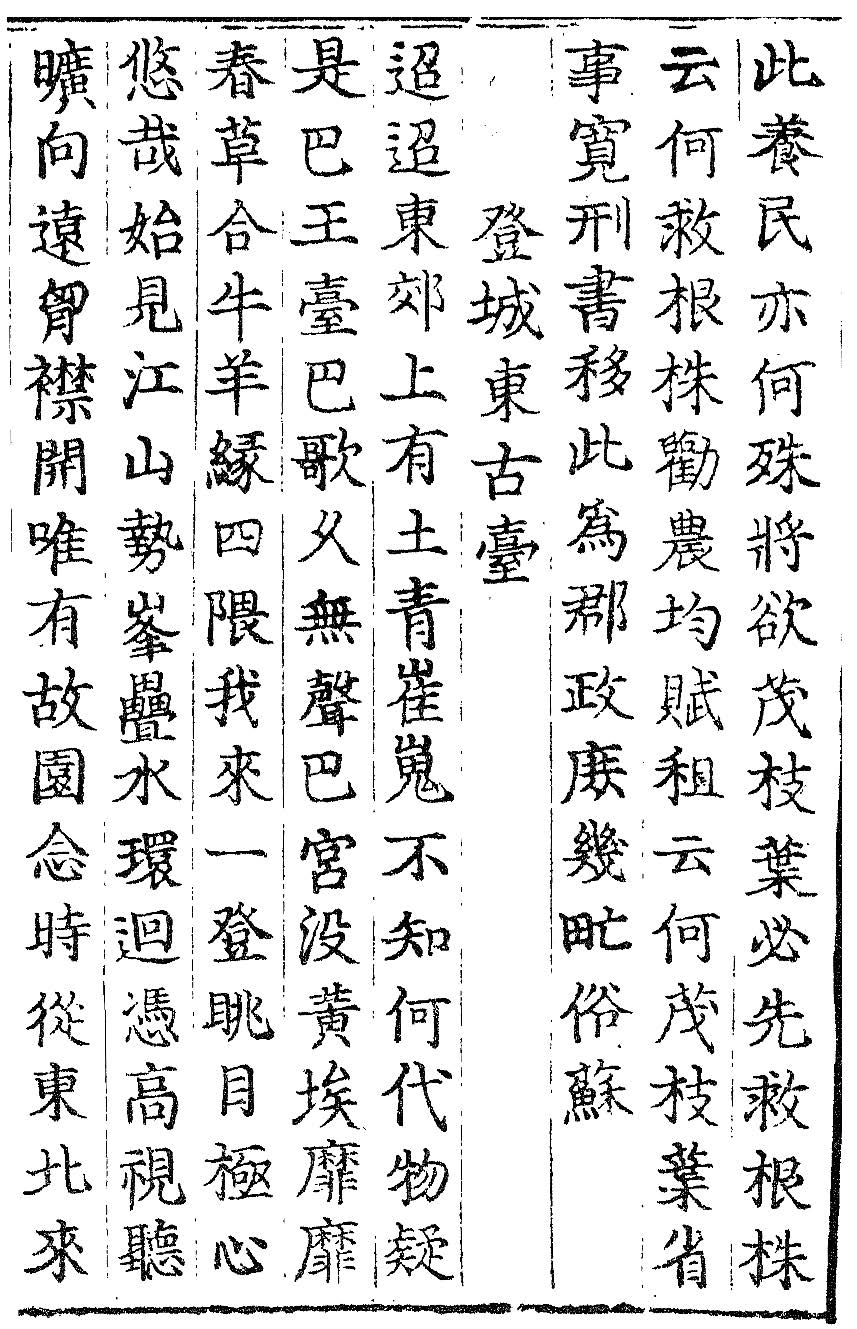 此養民亦何殊將欲茂枝葉必先救根株
云何救根株勸農均賦租云何茂枝葉省
事寬刑書移此為郡政庶幾甿俗蘇
登城東古臺
迢迢東郊上有土青崔嵬不知何代物疑
是巴王臺巴歌久無聲巴宮没黃埃靡靡
春草合牛羊緣四隈我來一登眺目極心
悠哉始見江山勢峯疊水環迴憑高視聽
曠向遠胷襟開唯有故園念時從東北來